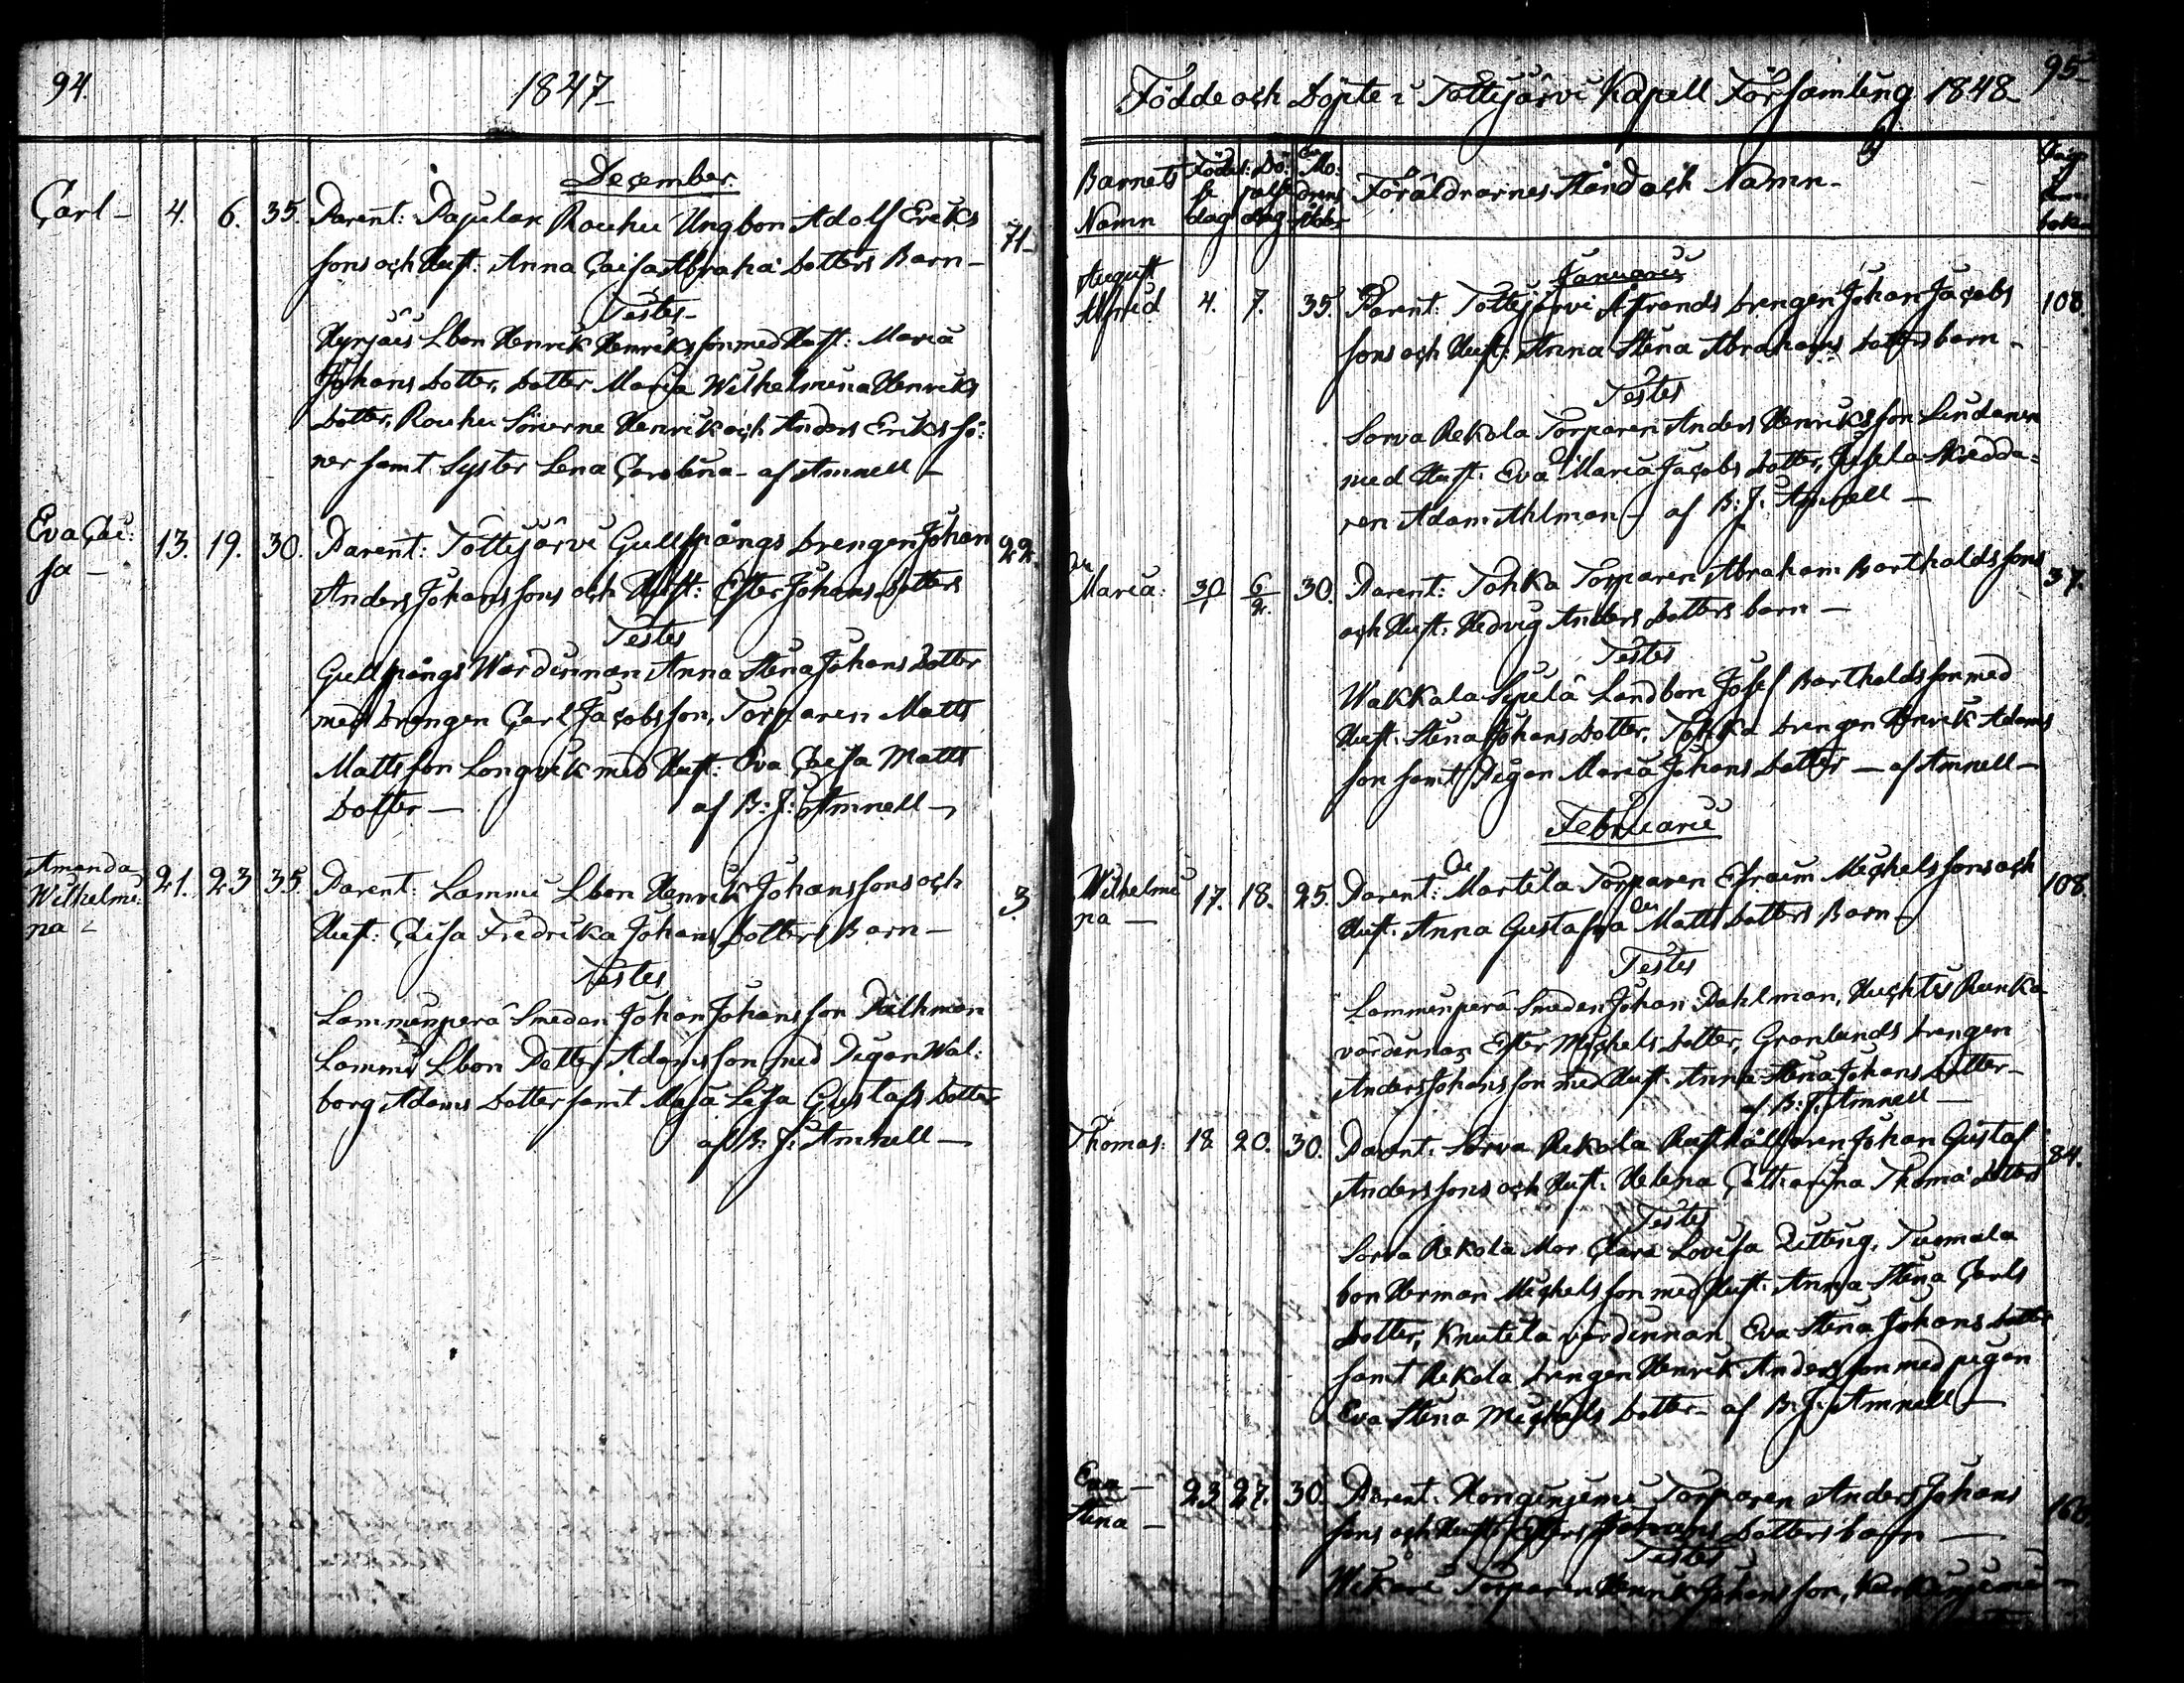 94.
1847
December.
Carl – 4. 6. 35. Parent: Papulan Rouhu Ungbon Adolf Eriks
sons och Hust: Anna Caisa Abraha' dotters Barn – 71
Testes
Hyrjäis Lbon Henrik Henriksson med Hust: Maria
Johans dotter, dotter Maria Wilhelmina Henriks
dotter, Rouhu Sönerne Henrik och Anders Eriks sö:
ner samt Syster Lena Carolina – af Amnell –
Eva Cai:
sa – 13. 19. 30. Parent: Tottijärvi Gullspångs drengen Johan 22.
Anders Johanssons och Hust: Ester Johans dotters
Testes
Gullspångs Wärdinnan Anna Stina Johans dotter
med drengen Carl Jacobsson, Torparen Matts
Mattsson Longvik med Hust: Eva Caisa Matts
dotter – af B: J: Amnell –
Amanda
Wilhelmi:
na – 21. 23 35. Parent: Lammi Lbon Henrik Johanssons och 3
Hust: Caisa Fredrika Johans dotters Barn –
Testes
Lammenperä Smeden Johan Johansson Dalhman
Lammi Lbon Petter Adamsson med Pigan Wal:
borg Adams dotter samt Maja Lisa Gustafs dotter
af B: J: Amnell –
95
Födde och Döpte i Tottijärvi Kapell Församling 1848
Barnets Namn Födel: se dag Dö: pelse dag Mo: drens Ålder Föräldrarnes Stånd och Namn –
Januarii
August
Alfrid 4. 7. 35. Parent: Tottijärvi Åstrands drengen Johan Jacobs 108.
sons och Hust: Anna Stina Abrahams dotters barn –
Testes
Sorva Rekola Torparen Anders Henriksson Lindanen
med Hust: Eva Maria Jacobs dotter, Jusela Skrädda:
ren Adam Ahlman – af B: J: Amnell –
Maria: 30/1 6/2. 30. Parent: Tohka Torparen Abraham Bartholdssons 37.
och Hust: Hedvig Anders dotters barn –
Testes
Wakkala Sipilä Landbon Josef Bartholdsson med
Hust: Stina Johans dotter, Tohka drengen Henrik Adams
son samt Pigan Maria Johans dotter – af Amnell –
Februarii
Wilhelmi
na – 17. 18. 25. Parent: Martila Torparen Efraim Michelssons och 108.
Hust: Anna Gustafva Matts dotters Barn –
Testes
Lammenperä Smeden Johan Dahlman, Huchtis Runka
värdinnan Ester Michels dotter, Granlunds drengen
Anders Johansson med Hust: Anna Stina Johans dotter –
af B: J: Amnell –
Thomas: 18 20. 30. Parent: Sorva Rekola Rusthållaren Johan Gustaf 84.
Anderssons och Hust: Helena Catharina Thoma' dotters
Testes
Sorva Rekola Mor Clara Lovisa Zitting, Tuomala
bon Herman Michelsson med Hust: Anna Stina Carls
dotter, Knutila värdinnan Eva Stina Johans dotter
samt Rekola drengen Henrik Andersson med pigan
Eva Stina Michels dotter – af B: J: Amnell –
Eva –
Stina – 23 27. 30. Parent: Honginjemi Torparen Anders Johans
sons och Hust: Johans dotters barn –
Testes
Torparen Henrik Johansson,